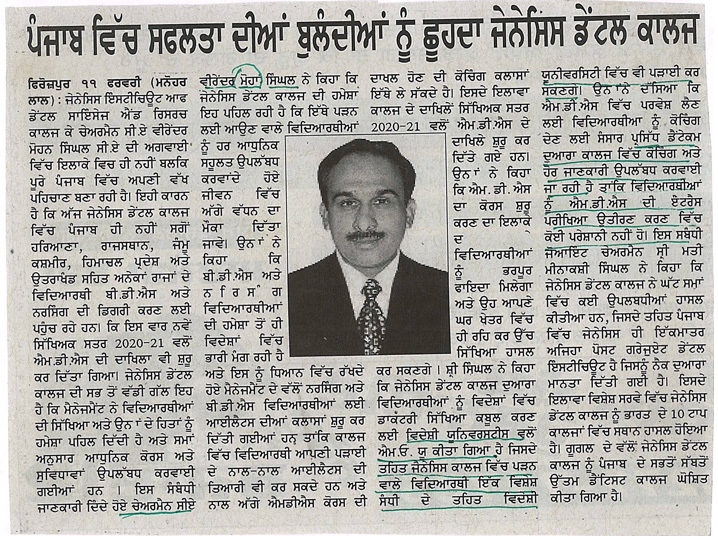 ਪੰਜਾਬ ਵਿੱਚ ਸਫਲਤਾ ਦੀਆਂ ਬੁਲੰਦੀਆਂ ਨੂੰ ਛੂਹਦਾ ਜੇਨੇਸਿਸ ਡੇਂਟਲ ਕਾਲਜ
ਫਿਰੋਜ਼ਪੁਰ ੧੧ ਫਰਵਰੀ (ਮਨੋਹਰ
ਲਾਲ): ਜੇਨੇਸਿਸ ਇਸਟੀਚਿਊਟ ਆਫ
ਡੇਂਟਲ ਸਾਇਸੇਜ ਐਂਡ ਰਿਸਰਚ
ਕਾਲਜ ਕੇ ਚੇਅਰਮੈਨ ਸੀ.ਏ ਵੀਰੇਂਦਰ
ਮੋਹਨ ਸਿੰਘਲ ਸੀ.ਏ ਦੀ ਅਗਵਾਈ
ਵਿੱਚ ਇਲਾਕੇ ਵਿਚ ਹੀ ਨਹੀਂ ਬਲਕਿ
ਪੂਰੇ ਪੰਜਾਬ ਵਿੱਚ ਅਪਣੀ ਵੱਖ
ਪਹਿਚਾਣ ਬਣਾ ਰਹੀ ਹੈ। ਇਹੀ ਕਾਰਨ
ਹੈ ਕਿ ਅੱਜ ਜੇਨੇਸਿਸ ਡੇਂਟਲ ਕਾਲਜ
ਵਿੱਚ ਪੰਜਾਬ ਹੀ ਨਹੀਂ ਸਗੋਂ
ਹਰਿਆਣਾ, ਰਾਜਸਥਾਨ, ਜੰਮੂ
ਕਸ਼ਮੀਰ, ਹਿਮਾਚਲ ਪ੍ਰਦੇਸ਼ ਅਤੇ
ਉਤਰਾਖੰਡ ਸਹਿਤ ਅਨੇਕਾਂ ਰਾਜਾਂ ਦੇ
ਵਿਦਿਆਰਥੀ ਬੀ.ਡੀ.ਐਸ ਅਤੇ
ਨਰਸਿੰਗ ਦੀ ਡਿਗਰੀ ਕਰਣ ਲਈ
ਪਹੁੰਚ ਰਹੇ ਹਨ। ਕਿ ਇਸ ਵਾਰ ਨਵੇਂ
ਸਿੱਖਿਅਕ ਸਤਰ 2020-21 ਵਲੋਂ
ਐਮ.ਡੀ.ਐਸ ਦੀ ਦਾਖਿਲਾ ਵੀ ਸ਼ੁਰੂ
ਕਰ ਦਿੱਤਾ ਗਿਆ। ਜੇਨੇਸਿਸ ਡੇਂਟਲ
ਕਾਲਜ ਦੀ ਸਭ ਤੋਂ ਵੱਡੀ ਗੱਲ ਇਹ
ਹੈ ਕਿ ਮੈਨੇਜਮੈਂਟ ਨੇ ਵਿਦਿਆਰਥੀਆਂ
ਦੀ ਸਿੱਖਿਆ ਅਤੇ ਉਨਾਂ ਦੇ ਹਿਤਾਂ ਨੂੰ
ਹਮੇਸ਼ਾ ਪਹਿਲ ਦਿੱਤੀ ਹੈ ਅਤੇ ਸਮਾਂ
ਅਨੁਸਾਰ ਆਧੁਨਿਕ ਕੋਰਸ ਅਤੇ
ਸੁਵਿਧਾਵਾਂ ਉਪਲੱਬਧ ਕਰਵਾਈ
ਗਈਆਂ ਹਨ । ਇਸ ਸੰਬੰਧੀ
ਜਾਣਕਾਰੀ ਦਿੰਦੇ ਹੋਏ ਚੇਅਰਮੈਨ ਸੀਏ
ਵੀਰੇਂਦਰ ਮੋਹਾ ਸਿੰਘਲ ਨੇ ਕਿਹਾ ਕਿ
ਜੇਨੇਸਿਸ ਡੇਂਟਲ ਕਾਲਜ ਦੀ ਹਮੇਸ਼ਾ
ਇਹ ਪਹਿਲ ਰਹੀ ਹੈ ਕਿ ਇੱਥੇ ਪੜਨ
ਲਈ ਆਉਣ ਵਾਲੇ ਵਿਦਿਆਰਥੀਆਂ
ਨੂੰ ਹਰ ਆਧੁਨਿਕ
ਸਹੂਲਤ ਉਪਲਬੱਧ
ਕਰਵਾਂਦੇ ਹੋਏ
ਜੀਵਨ ਵਿੱਚ
ਅੱਗੇ ਵੱਧਨ ਦਾ
ਮੌਕਾ ਦਿੱਤਾ
ਜਾਵੇ। ਉਨਾਂ ਨੇ
ਕਿਹਾ ਕਿ
ਬੀ.ਡੀ.ਐਸ ਅਤੇ
ਨਰਸਿੰਗ
ਵਿਦਿਆਰਥੀਆਂ
ਦੀ ਹਮੇਸ਼ਾ ਤੋਂ ਹੀ
ਵਿਦੇਸ਼ਾਂ ਵਿੱਚ
ਭਾਰੀ ਮੰਗ ਰਹੀ ਹੈ
ਅਤੇ ਇਸ ਨੂੰ ਧਿਆਨ ਵਿੱਚ ਰੱਖਦੇ
ਹੋਏ ਮੈਨੇਜਮੈਂਟ ਦੇ ਵੱਲੋਂ ਨਰਸਿੰਗ ਅਤੇ
ਬੀ.ਡੀ.ਐਸ ਵਿਦਿਆਰਥੀਆਂ ਲਈ
ਆਈਲੈਟਸ ਦੀਆਂ ਕਲਾਸਾਂ ਸ਼ੁਰੂ ਕਰ
ਦਿੱਤੀ ਗਈਆਂ ਹਨ ਤਾਕਿ ਕਾਲਜ
ਵਿੱਚ ਵਿਦਿਆਰਥੀ ਆਪਣੀ ਪੜਾਈ
ਦੇ ਨਾਲ-ਨਾਲ ਆਈਲੈਟਸ ਦੀ
ਤਿਆਰੀ ਵੀ ਕਰ ਸਕਦੇ ਹਨ ਅਤੇ
ਨਾਲ ਅੱਗੇ ਐਮਡੀਐਸ ਕੋਰਸ ਦੀ
ਦਾਖਲ ਹੋਣ ਦੀ ਕੋਚਿੰਗ ਕਲਾਸਾਂ
ਇੱਥੇ ਲੇ ਸੱਕਦੇ ਹੈ। ਇਸਦੇ ਇਲਾਵਾ
ਕਾਲਜ ਦੇ ਦਾਖਿਲੇ ਸਿੱਖਿਅਕ ਸਤਰ
2020-21 ਵਲੋਂ
ਐਮ.ਡੀ.ਐਸ ਦੇ
ਦਾਖਿਲੇ ਸ਼ੁਰੂ ਕਰ
ਦਿੱਤੇ ਗਏ ਹਨ।
ਉਨਾਂ ਨੇ ਕਿਹਾ
ਕਿ ਐਮ.ਡੀ.ਐਸ
ਦਾ ਕੋਰਸ ਸ਼ੁਰੂ
ਕਰਣ ਦਾ ਇਲਾਕੇ
ਦੇ
ਵਿਦਿਆਰਥੀਆਂ
ਨੂੰ ਭਰਪੂਰ
ਫਾਇਦਾ ਮਿਲੇਗਾ
ਅਤੇ ਉਹ ਆਪਣੇ
ਘਰ ਖੇਤਰ ਵਿੱਚ
ਹੀ ਰਹਿ ਕਰ ਉੱਚ
ਸਿੱਖਿਆ ਹਾਸਲ
ਕਰ ਸਕਣਗੇ। ਸ਼੍ਰੀ ਸਿੰਘਲ ਨੇ ਕਿਹਾ
ਕਿ ਜੇਨੇਸਿਸ ਡੇਂਟਲ ਕਾਲਜ ਦੁਆਰਾ
ਵਿਦਿਆਰਥੀਆਂ ਨੂੰ ਵਿਦੇਸ਼ਾਂ ਵਿੱਚ
ਡਾਕਟਰੀ ਸਿੱਖਿਆ ਕਬੂਲ ਕਰਣ
ਲਈ ਵਿਦੇਸ਼ੀ ਯੂਨਿਵਰਸਟੀਸ ਵਲੋਂ
ਐਮ.ਓ. ਯੂ ਕੀਤਾ ਗਿਆ ਹੈ ਜਿਸਦੇ
ਤਹਿਤ ਜੇਨੇਸਿਸ ਕਾਲਜ ਵਿੱਚ ਪੜਨ
ਵਾਲੇ ਵਿਦਿਆਰਥੀ ਇੱਕ ਵਿਸ਼ੇਸ਼
ਸੰਧੀ ਦੇ ਤਹਿਤ ਵਿਦੇਸ਼ੀ
ਯੂਨੀਵਰਸਿਟੀ ਵਿੱਚ ਵੀ ਪੜਾਈ ਕਰ
ਸਕਣਗੇ। ਉਨਾਂਨੇ ਦੱਸਿਆ ਕਿ
ਐਮ.ਡੀ.ਐਸ ਵਿੱਚ ਪਰਵੇਸ਼ ਲੈਣ
ਲਈ ਵਿਦਿਆਰਥੀਆਂ ਨੂੰ ਕੋਚਿੰਗ
ਦੇਣ ਲਈ ਸੰਸਾਰ ਪ੍ਰਸਿੱਧ ਡੇਂਟੇਕਮ
ਦੁਆਰਾ ਕਾਲਜ ਵਿੱਚ ਕੋਚਿੰਗ ਅਤੇ
ਹੋਰ ਜਾਣਕਾਰੀ ਉਪਲੱਬਧ ਕਰਵਾਈ
ਜਾ ਰਹੀ ਹੈ ਤਾਂਕਿ ਵਿਦਿਆਰਥੀਆਂ
ਨੂੰ ਐਮ.ਡੀ.ਐਸ ਦੀ ਏਂਟਰੇਂਸ
ਪਰੀਖਿਆ ਉਤੀਰਣ ਕਰਣ ਵਿੱਚ
ਕੋਈ ਪਰੇਸ਼ਾਨੀ ਨਹੀਂ ਹੋ। ਇਸ ਸਬੰਧੀ
ਜੋਆਇੰਟ ਚੇਅਰਮੈਨ ਸ਼੍ਰੀ ਮਤੀ
ਮੀਨਾਕਸ਼ੀ ਸਿੰਘਲ ਨੇ ਕਿਹਾ ਕਿ
ਜੇਨੇਸਿਸ ਡੇਂਟਲ ਕਾਲਜ ਨੇ ਘੱਟ ਸਮਾਂ
ਵਿੱਚ ਕਈ ਉਪਲਬਧੀਆਂ ਹਾਸਲ
ਕੀਤੀਆ ਹਨ, ਜਿਸਦੇ ਤਹਿਤ ਪੰਜਾਬ
ਵਿੱਚ ਜੇਨੇਸਿਸ ਹੀ ਇੱਕਮਾਤਰ
ਅਜਿਹਾ ਪੋਸਟ ਗਰੇਜੁਏਟ ਡੇਂਟਲ
ਇੰਸਟੀਚਿਊਟ ਹੈ ਜਿਸਨੂੰ ਨੈਕ ਦੁਆਰਾ
ਮਾਨਤਾ ਦਿੱਤੀ ਗਈ ਹੈ। ਇਸਦੇ
ਇਲਾਵਾ ਵਿਸ਼ੇਸ਼ ਸਰਵੇ ਵਿੱਚ ਜੇਨੇਸਿਸ
ਡੇਂਟਲ ਕਾਲਜ ਨੂੰ ਭਾਰਤ ਦੇ 10 ਟਾਪ
ਕਾਲਜਾਂ ਵਿੱਚ ਸਥਾਨ ਹਾਸਲ ਹੋਇਆ
ਹੈ। ਗੂਗਲ ਦੇ ਵੱਲੋਂ ਜੇਨੇਸਿਸ ਡੇਂਟਲ
ਕਾਲਜ ਨੂੰ ਪੰਜਾਬ ਦੇ ਸਭਤੋਂ ਸੱਬਤੋਂ
ਉੱਤਮ ਡੇਂਟਿਸਟ ਕਾਲਜ ਘੋਸ਼ਿਤ
ਕੀਤਾ ਗਿਆ ਹੈ।